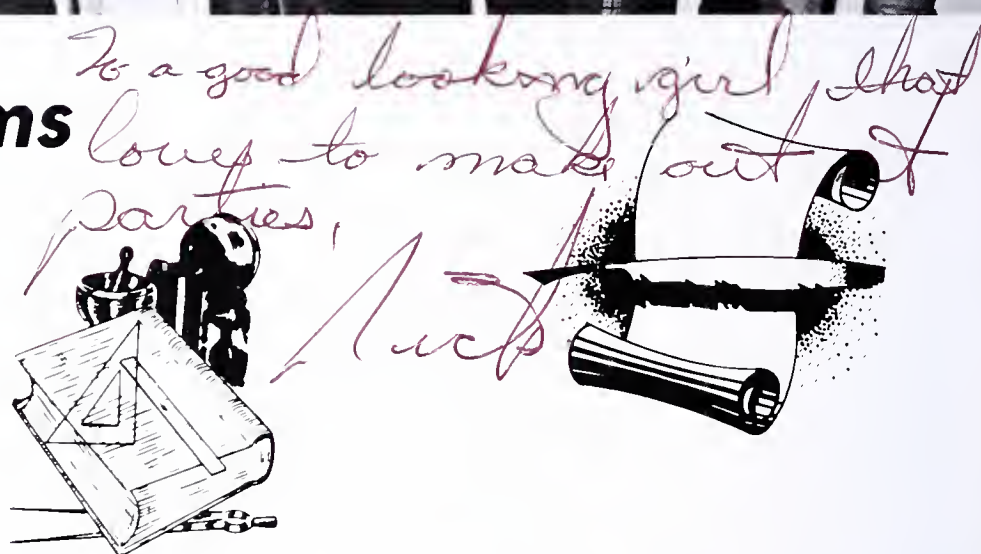 To a good looking girl that
ms
loves to make out at
parties,
Nick